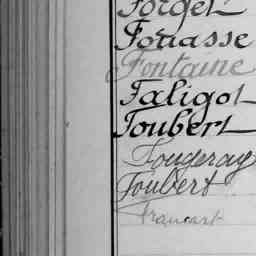 Forget
Fouasse
Fontaine
Faligot
Foubert
Fougeray
Foubert
Francart